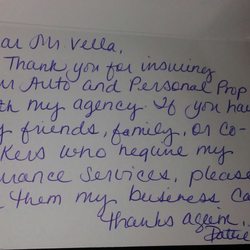 ar Mr. Vella,
Thank you for insuring
ur Auto and Personal Prop
th my agency. If you hav
y friends, family, or co-
kers who require my
urance services, please
them my business ca
thanks again,
Pattie